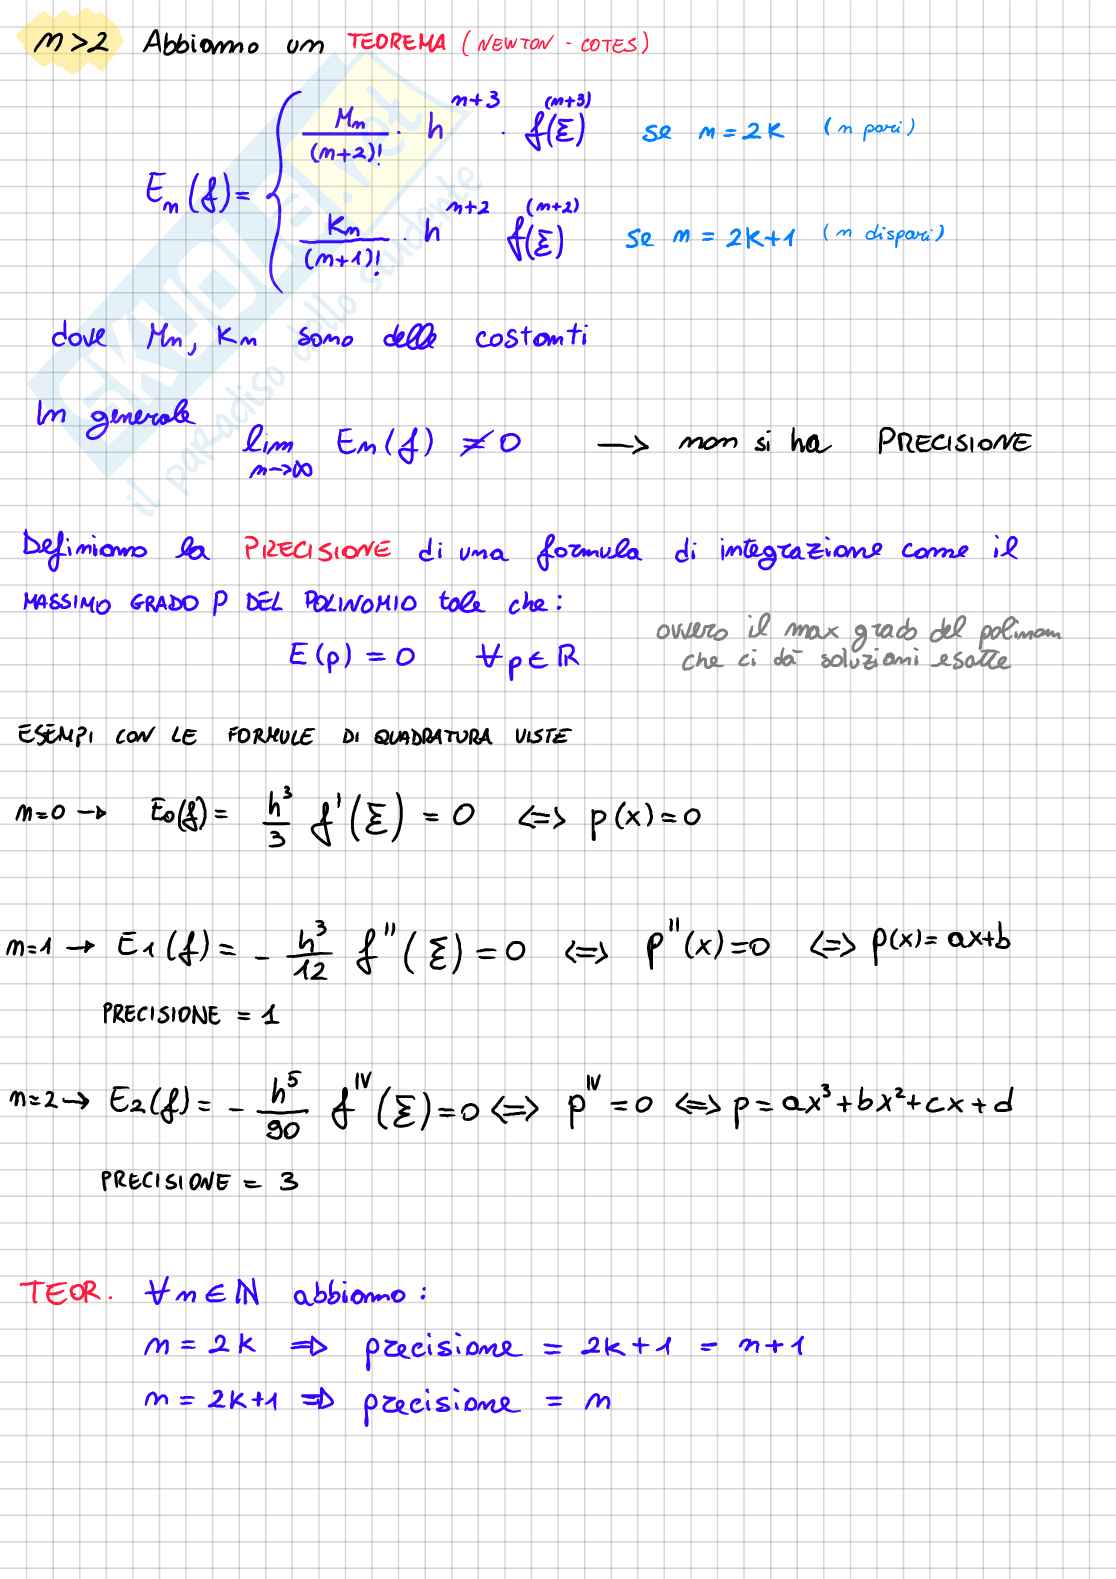 n>2 Abbiamo un TEOREMA (NEWTON - COTES)
Eₙ(f) = { Mₙ/(n+2)! · hⁿ⁺³ · f⁽ⁿ⁺³⁾(ξ) se n = 2K (n pari)
Kₙ/(n+1)! · hⁿ⁺² f⁽ⁿ⁺²⁾(ξ) se n = 2K+1 (n dispari)
dove Mₙ, Kₙ sono delle costanti
In generale lim n→∞ Eₙ(f) ≠ 0 → non si ha PRECISIONE
Definiamo la PRECISIONE di una formula di integrazione come il
MASSIMO GRADO P DEL POLINOMIO tale che:
E(p) = 0 ∀p∈ℝ
ovvero il max grado del polinom
che ci dà soluzioni esatte
ESEMPI CON LE FORMULE DI QUADRATURA VISTE
n=0 → E₀(f) = h³/3 f'(ξ) = 0 <=> p(x)=0
n=1 → E₁(f) = - h³/12 f''(ξ) = 0 <=> p''(x)=0 <=> p(x)= ax+b
PRECISIONE = 1
n=2 → E₂(f) = - h⁵/90 f^IV(ξ) = 0 <=> p^IV = 0 <=> p = ax³+bx²+cx+d
PRECISIONE = 3
TEOR. ∀n∈ℕ abbiamo:
n = 2K => precisione = 2K+1 = n+1
n = 2K+1 => precisione = n
SKUOLA.net
il paradiso dello studente